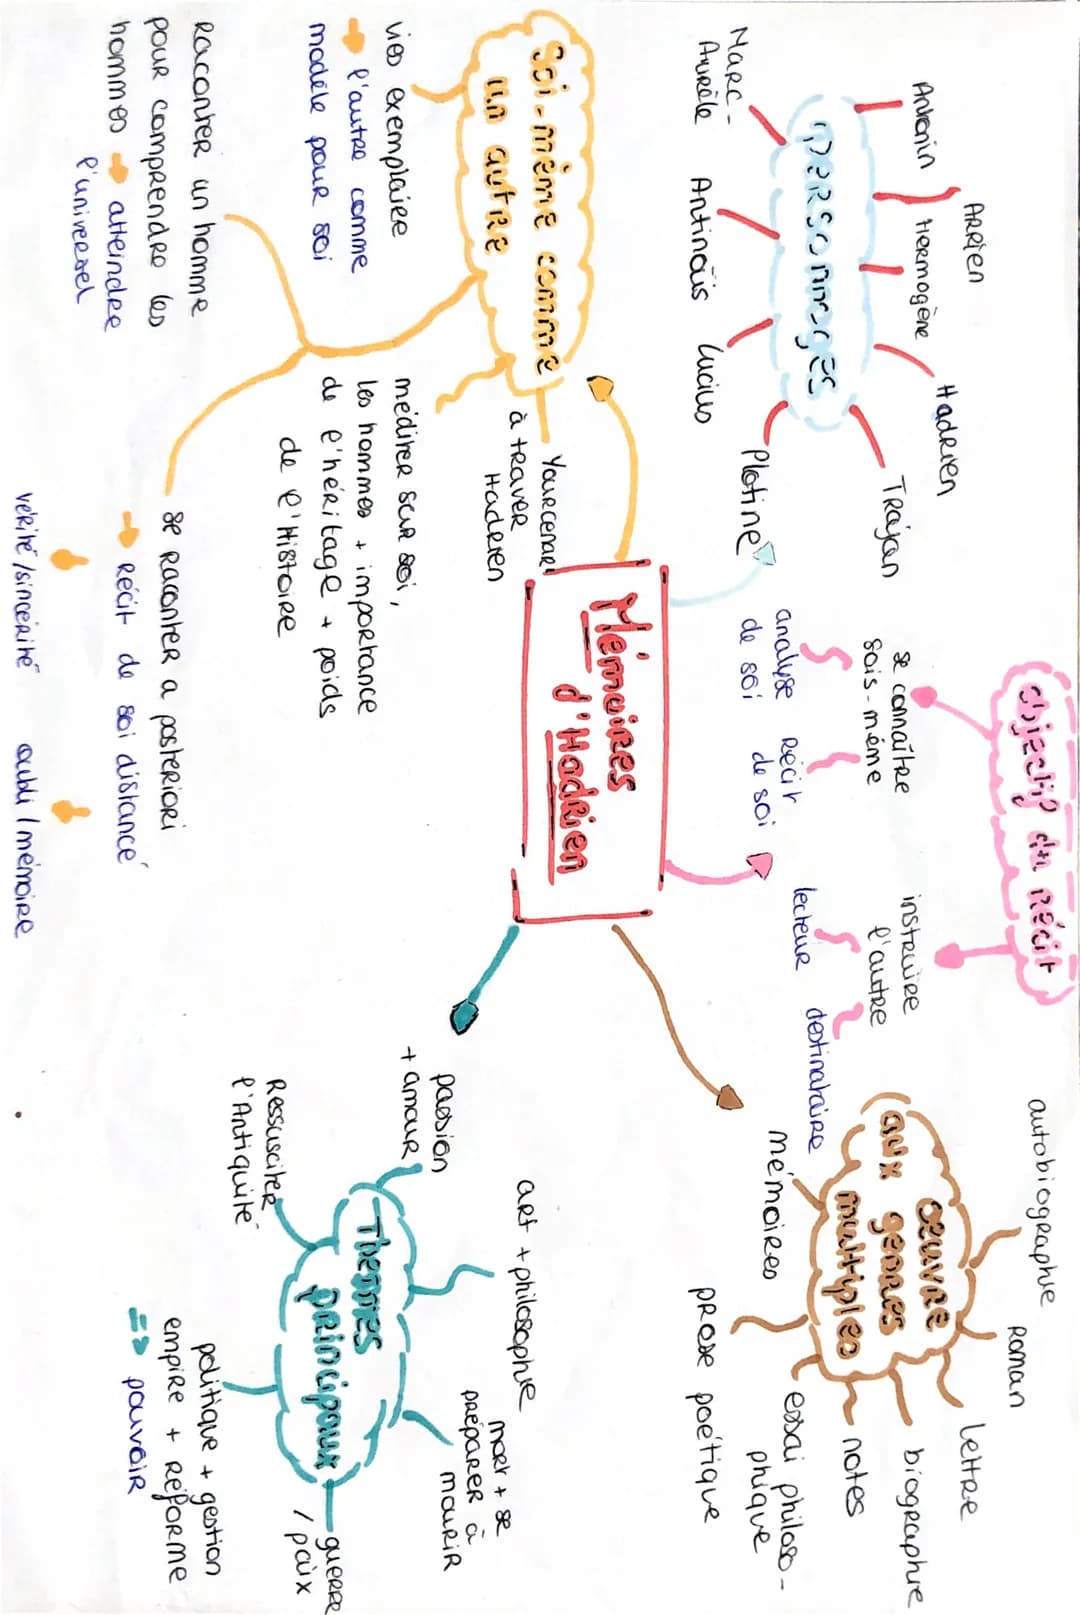 Mémoires
d'Hadrien
personnages
Antonin
Arrien
Hermogène
Hadrien
Trajan
Marc-
Aurèle
Antinoüs
Lucius
Plotine
objectif du récit
se connaître
sois-même
analyse
de soi
Récit
de soi
instruire
l'autre
lecteur
destinataire
œuvre
aux genres
multiples
autobiographie
Roman
lettre
biographie
notes
essai philoso-
phique
prose poétique
mémoires
Soi-même comme
un autre
Yourcenar
à traver
Hadrien
vies exemplaire
l'autre comme
modèle pour soi
méditer sur soi,
les hommes + importance
de l'héritage + poids
de l'Histoire
Raconter un homme
pour comprendre les
hommes → atteindre
l'universel
se raconter a posteriori
→ Récit de soi distancé
vérité/sincérité
oubli/mémoire
Themes
principaux
passion
+ amour
art + philosophie
mort + se
préparer à
mourir
guerre
/ paix
politique + gestion
empire + réforme
=> pouvoir
Ressusciter
l'Antiquité